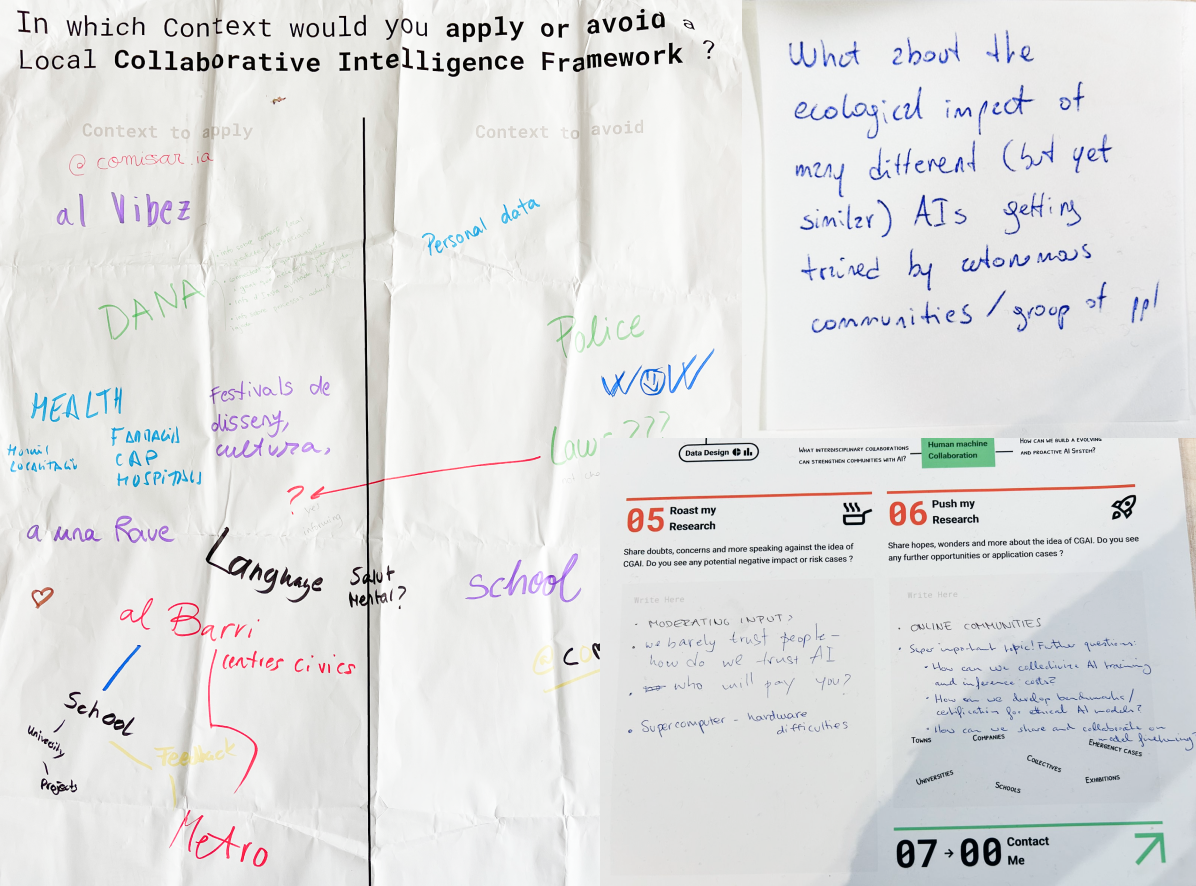 In which Context would you apply or avoid a
Local Collaborative Intelligence Framework ?
Context to apply
@ comissar.ia
al Vibez
DANA
HEALTH
CAP
HOSPITALS
Festivals de
disseny,
cultura,
?
a una Rave
Language
Salut
Mental?
al Barri
centres civics
School
University
Projects
Feedback
Metro
Context to avoid
Personal data
Police
WOW
Law ???
School
What about the
ecological impact of
many different (but yet
similar) AIs getting
trained by autonomous
communities / group of ppl
Data Design
What interdisciplinary collaborations
can strengthen communities with AI?
Human machine
Collaboration
How can we build a evolving
and proactive AI System?
05 Roast my
Research
Share doubts, concerns and more speaking against the idea of
CGAI. Do you see any potential negative impact or risk cases ?
Write Here
• MODERATING INPUT?
• we barely trust people –
how do we trust AI
• who will pay you?
• Supercomputer - hardware
difficulties
06 Push my
Research
Share hopes, wonders and more about the idea of CGAI. Do you see
any further opportunities or application cases ?
Write Here
• ONLINE COMMUNITIES
• Super important topic! Futher questions:
• How can we collectivize AI training
and inference costs?
• How can we develop benchmarks/
certification for ethical AI models?
• How can we share and collaborate on
model finetuning
Towns
Companies
Emergency cases
Universities
Colectives
Schools
Exhibitions
07 → 00 Contact
Me